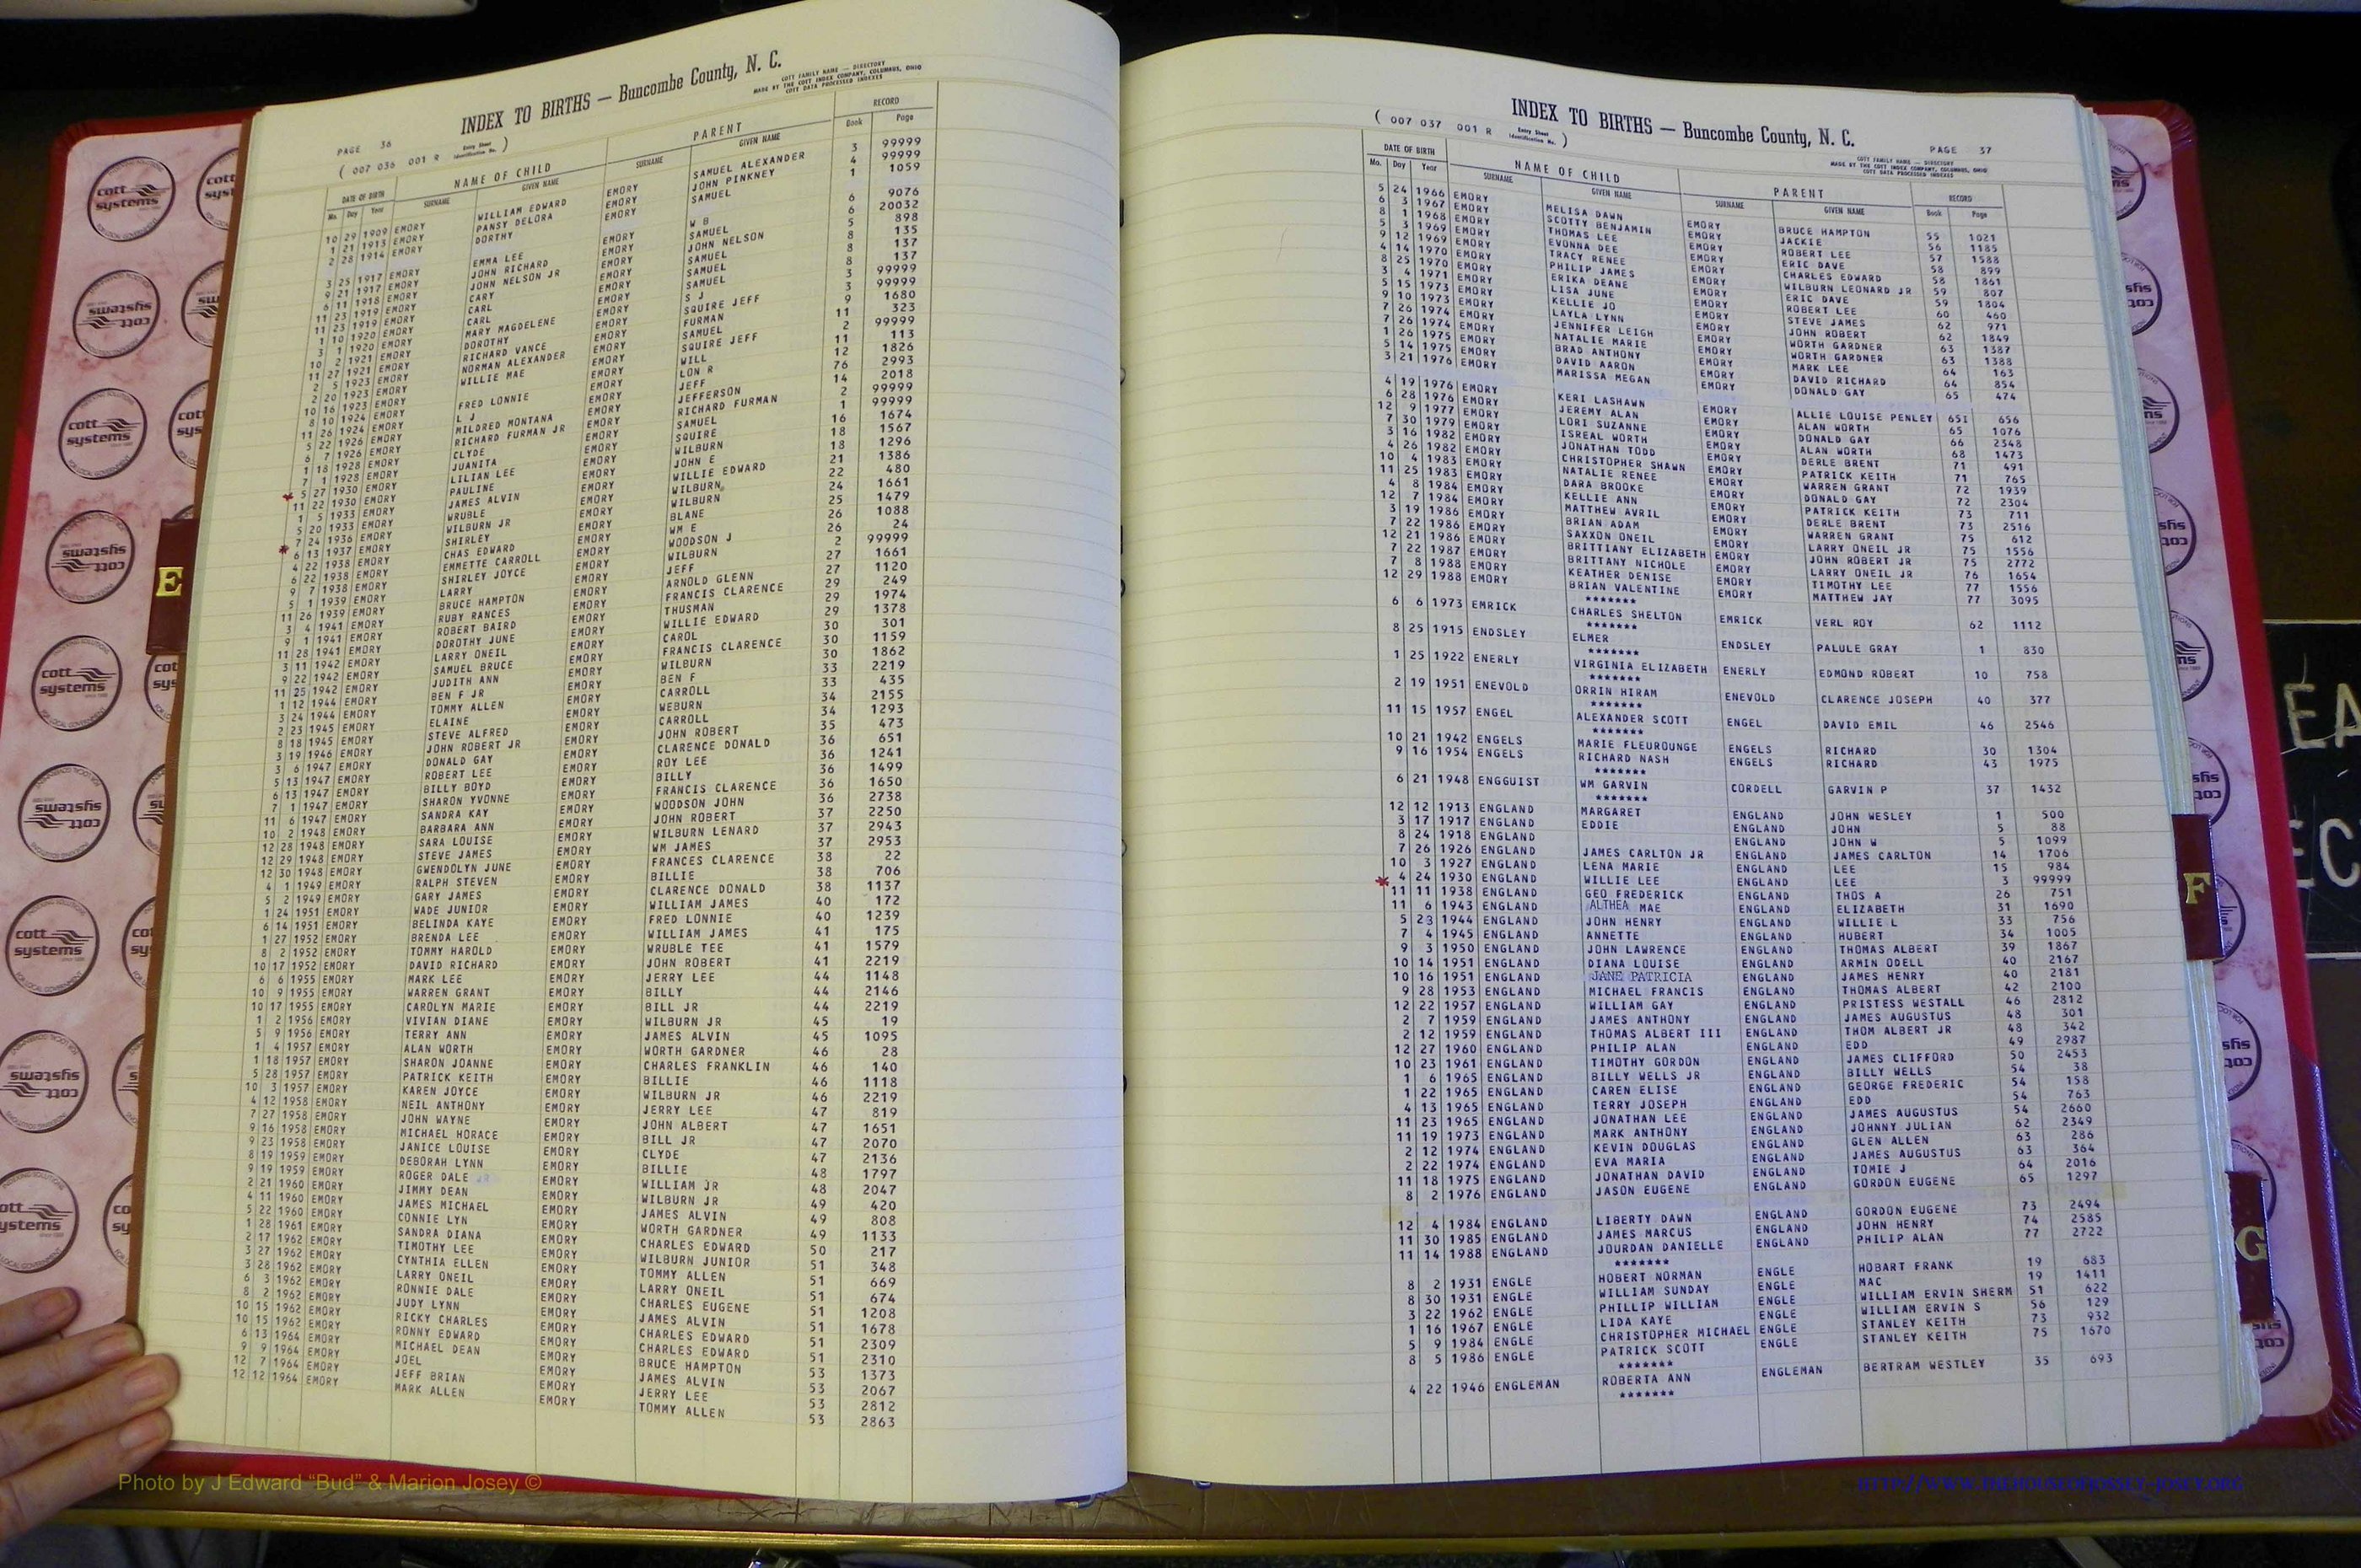 INDEX TO BIRTHS — Buncombe County, N. C.
COTT FAMILY NAME — DIRECTORY
MADE BY THE COTT INDEX COMPANY, COLUMBUS, OHIO
COTT DATA PROCESSED INDEXES
PAGE 36
( 007 036 001 R Entry Sheet Identification No. )
DATE OF BIRTH NAME OF CHILD PARENT RECORD
Mo. Day Year SURNAME GIVEN NAME SURNAME GIVEN NAME Book Page
10 29 1909 EMORY WILLIAM EDWARD EMORY SAMUEL ALEXANDER 3 99999
1 21 1913 EMORY PANSY DELORA EMORY JOHN PINKNEY 4 99999
2 28 1914 EMORY DORTHY EMORY SAMUEL 1 1059
3 25 1917 EMORY EMMA LEE EMORY W B 6 9076
9 21 1917 EMORY JOHN RICHARD EMORY SAMUEL 6 20032
6 11 1918 EMORY JOHN NELSON JR EMORY JOHN NELSON 5 898
11 23 1919 EMORY CARY EMORY SAMUEL 8 135
11 23 1919 EMORY CARL EMORY SAMUEL 8 137
1 10 1920 EMORY CARL EMORY SAMUEL 8 137
3 1 1920 EMORY MARY MAGDELENE EMORY S J 3 99999
10 2 1921 EMORY DOROTHY EMORY SQUIRE JEFF 3 99999
11 27 1921 EMORY RICHARD VANCE EMORY FURMAN 9 1680
2 5 1923 EMORY NORMAN ALEXANDER EMORY SAMUEL 11 323
2 20 1923 EMORY WILLIE MAE EMORY SQUIRE JEFF 2 99999
10 16 1923 EMORY EMORY WILL 11 113
8 10 1924 EMORY FRED LONNIE EMORY LON R 12 1826
11 26 1924 EMORY L J EMORY JEFF 76 2993
5 22 1926 EMORY MILDRED MONTANA EMORY JEFFERSON 14 2018
6 7 1926 EMORY RICHARD FURMAN JR EMORY RICHARD FURMAN 2 99999
1 18 1928 EMORY CLYDE EMORY SAMUEL 1 99999
7 1 1928 EMORY JUANITA EMORY SQUIRE 16 1674
5 27 1930 EMORY LILIAN LEE EMORY WILBURN 18 1567
11 22 1930 EMORY PAULINE EMORY JOHN E 18 1296
1 5 1933 EMORY JAMES ALVIN EMORY WILLIE EDWARD 21 1386
5 20 1933 EMORY WRUBLE EMORY WILBURN 22 480
7 24 1936 EMORY WILBURN JR EMORY WILBURN 24 1661
6 13 1937 EMORY SHIRLEY EMORY BLANE 25 1479
4 22 1938 EMORY CHAS EDWARD EMORY WM E 26 1088
6 22 1938 EMORY EMMETTE CARROLL EMORY WOODSON J 26 24
9 7 1938 EMORY SHIRLEY JOYCE EMORY WILBURN 2 99999
5 1 1939 EMORY LARRY EMORY JEFF 27 1661
11 26 1939 EMORY BRUCE HAMPTON EMORY ARNOLD GLENN 27 1120
3 4 1941 EMORY RUBY RANCES EMORY FRANCIS CLARENCE 29 249
9 1 1941 EMORY ROBERT BAIRD EMORY THUSMAN 29 1974
11 28 1941 EMORY DOROTHY JUNE EMORY WILLIE EDWARD 29 1378
3 11 1942 EMORY LARRY ONEIL EMORY CAROL 30 301
9 22 1942 EMORY SAMUEL BRUCE EMORY FRANCIS CLARENCE 30 1159
11 25 1942 EMORY JUDITH ANN EMORY WILBURN 30 1862
1 12 1944 EMORY BEN F JR EMORY BEN F 33 2219
3 24 1944 EMORY TOMMY ALLEN EMORY CARROLL 33 435
2 23 1945 EMORY ELAINE EMORY WEBURN 34 2155
8 18 1945 EMORY STEVE ALFRED EMORY CARROLL 34 1293
3 19 1946 EMORY JOHN ROBERT JR EMORY JOHN ROBERT 35 473
3 6 1947 EMORY DONALD GAY EMORY CLARENCE DONALD 36 651
5 13 1947 EMORY ROBERT LEE EMORY ROY LEE 36 1241
6 13 1947 EMORY BILLY BOYD EMORY BILLY 36 1499
7 1 1947 EMORY SHARON YVONNE EMORY FRANCIS CLARENCE 36 1650
11 6 1947 EMORY SANDRA KAY EMORY WOODSON JOHN 36 2738
10 2 1948 EMORY BARBARA ANN EMORY JOHN ROBERT 37 2250
12 28 1948 EMORY SARA LOUISE EMORY WILBURN LENARD 37 2943
12 29 1948 EMORY STEVE JAMES EMORY WM JAMES 37 2953
12 30 1948 EMORY GWENDOLYN JUNE EMORY FRANCES CLARENCE 38 22
4 1 1949 EMORY RALPH STEVEN EMORY BILLIE 38 706
5 2 1949 EMORY GARY JAMES EMORY CLARENCE DONALD 38 1137
1 24 1951 EMORY WADE JUNIOR EMORY WILLIAM JAMES 40 172
6 14 1951 EMORY BELINDA KAYE EMORY FRED LONNIE 40 1239
1 27 1952 EMORY BRENDA LEE EMORY WILLIAM JAMES 41 175
8 2 1952 EMORY TOMMY HAROLD EMORY WRUBLE TEE 41 1579
10 17 1952 EMORY DAVID RICHARD EMORY JOHN ROBERT 41 2219
6 6 1955 EMORY MARK LEE EMORY JERRY LEE 44 1148
10 9 1955 EMORY WARREN GRANT EMORY BILLY 44 2146
10 17 1955 EMORY CAROLYN MARIE EMORY BILL JR 44 2219
1 2 1956 EMORY VIVIAN DIANE EMORY WILBURN JR 45 19
5 9 1956 EMORY TERRY ANN EMORY JAMES ALVIN 45 1095
1 4 1957 EMORY ALAN WORTH EMORY WORTH GARDNER 46 28
1 18 1957 EMORY SHARON JOANNE EMORY CHARLES FRANKLIN 46 140
5 28 1957 EMORY PATRICK KEITH EMORY BILLIE 46 1118
10 3 1957 EMORY KAREN JOYCE EMORY WILBURN JR 46 2219
4 12 1958 EMORY NEIL ANTHONY EMORY JERRY LEE 47 819
7 27 1958 EMORY JOHN WAYNE EMORY JOHN ALBERT 47 1651
9 16 1958 EMORY MICHAEL HORACE EMORY BILL JR 47 2070
9 23 1958 EMORY JANICE LOUISE EMORY CLYDE 47 2136
8 19 1959 EMORY DEBORAH LYNN EMORY BILLIE 48 1797
9 19 1959 EMORY ROGER DALE EMORY WILLIAM JR 48 2047
2 21 1960 EMORY JIMMY DEAN EMORY WILBURN JR 49 420
4 11 1960 EMORY JAMES MICHAEL EMORY JAMES ALVIN 49 808
5 22 1960 EMORY CONNIE LYN EMORY WORTH GARDNER 49 1133
1 28 1961 EMORY SANDRA DIANA EMORY CHARLES EDWARD 50 217
2 17 1962 EMORY TIMOTHY LEE EMORY WILBURN JUNIOR 51 348
3 27 1962 EMORY CYNTHIA ELLEN EMORY TOMMY ALLEN 51 669
3 28 1962 EMORY LARRY ONEIL EMORY LARRY ONEIL 51 674
6 3 1962 EMORY RONNIE DALE EMORY CHARLES EUGENE 51 1208
8 2 1962 EMORY JUDY LYNN EMORY JAMES ALVIN 51 1678
10 15 1962 EMORY RICKY CHARLES EMORY CHARLES EDWARD 51 2309
10 15 1962 EMORY RONNY EDWARD EMORY CHARLES EDWARD 51 2310
6 13 1964 EMORY MICHAEL DEAN EMORY BRUCE HAMPTON 53 1373
9 9 1964 EMORY JOEL EMORY JAMES ALVIN 53 2067
12 7 1964 EMORY JEFF BRIAN EMORY JERRY LEE 53 2812
12 12 1964 EMORY MARK ALLEN EMORY TOMMY ALLEN 53 2863
INDEX TO BIRTHS — Buncombe County, N. C.
( 007 037 001 R Entry Sheet Identification No. )
PAGE 37
COTT FAMILY NAME — DIRECTORY
MADE BY THE COTT INDEX COMPANY, COLUMBUS, OHIO
COTT DATA PROCESSED INDEXES
DATE OF BIRTH NAME OF CHILD PARENT RECORD
Mo. Day Year SURNAME GIVEN NAME SURNAME GIVEN NAME Book Page
5 24 1966 EMORY MELISA DAWN EMORY BRUCE HAMPTON 55 1021
6 3 1967 EMORY SCOTTY BENJAMIN EMORY JACKIE 56 1185
8 1 1968 EMORY THOMAS LEE EMORY ROBERT LEE 57 1588
5 3 1969 EMORY EVONNA DEE EMORY ERIC DAVE 58 899
9 12 1969 EMORY TRACY RENEE EMORY CHARLES EDWARD 58 1861
4 14 1970 EMORY PHILIP JAMES EMORY WILBURN LEONARD JR 59 807
8 25 1970 EMORY ERIKA DEANE EMORY ERIC DAVE 59 1804
3 4 1971 EMORY LISA JUNE EMORY ROBERT LEE 60 460
5 15 1973 EMORY KELLIE JO EMORY STEVE JAMES 62 971
9 10 1973 EMORY LAYLA LYNN EMORY JOHN ROBERT 62 1849
7 26 1974 EMORY JENNIFER LEIGH EMORY WORTH GARDNER 63 1387
7 26 1974 EMORY NATALIE MARIE EMORY WORTH GARDNER 63 1388
1 26 1975 EMORY BRAD ANTHONY EMORY MARK LEE 64 163
5 14 1975 EMORY DAVID AARON EMORY DAVID RICHARD 64 854
3 21 1976 EMORY MARISSA MEGAN EMORY DONALD GAY 65 474
4 19 1976 EMORY KERI LASHAWN EMORY ALLIE LOUISE PENLEY 651 656
6 28 1976 EMORY JEREMY ALAN EMORY ALAN WORTH 65 1076
12 9 1977 EMORY LORI SUZANNE EMORY DONALD GAY 66 2348
7 30 1979 EMORY ISREAL WORTH EMORY ALAN WORTH 68 1473
3 16 1982 EMORY JONATHAN TODD EMORY DERLE BRENT 71 491
4 26 1982 EMORY CHRISTOPHER SHAWN EMORY PATRICK KEITH 71 765
10 4 1983 EMORY NATALIE RENEE EMORY WARREN GRANT 72 1939
11 25 1983 EMORY DARA BROOKE EMORY DONALD GAY 72 2304
4 8 1984 EMORY KELLIE ANN EMORY PATRICK KEITH 73 711
12 7 1984 EMORY MATTHEW AVRIL EMORY DERLE BRENT 73 2516
3 19 1986 EMORY BRIAN ADAM EMORY WARREN GRANT 75 612
7 22 1986 EMORY SAXXON ONEIL EMORY LARRY ONEIL JR 75 1556
12 21 1986 EMORY BRITTIANY ELIZABETH EMORY JOHN ROBERT JR 75 2772
7 22 1987 EMORY BRITTANY NICHOLE EMORY LARRY ONEIL JR 76 1654
7 8 1988 EMORY KEATHER DENISE EMORY TIMOTHY LEE 77 1556
12 29 1988 EMORY BRIAN VALENTINE EMORY MATTHEW JAY 77 3095
*******
6 6 1973 EMRICK CHARLES SHELTON EMRICK VERL ROY 62 1112
*******
8 25 1915 ENDSLEY ELMER ENDSLEY PALULE GRAY 1 830
*******
1 25 1922 ENERLY VIRGINIA ELIZABETH ENERLY EDMOND ROBERT 10 758
*******
2 19 1951 ENEVOLD ORRIN HIRAM ENEVOLD CLARENCE JOSEPH 40 377
*******
11 15 1957 ENGEL ALEXANDER SCOTT ENGEL DAVID EMIL 46 2546
*******
10 21 1942 ENGELS MARIE FLEUROUNGE ENGELS RICHARD 30 1304
9 16 1954 ENGELS RICHARD NASH ENGELS RICHARD 43 1975
*******
6 21 1948 ENGGUIST WM GARVIN CORDELL GARVIN P 37 1432
*******
12 12 1913 ENGLAND MARGARET ENGLAND JOHN WESLEY 1 500
3 17 1917 ENGLAND EDDIE ENGLAND JOHN 5 88
8 24 1918 ENGLAND ENGLAND JOHN W 5 1099
7 26 1926 ENGLAND JAMES CARLTON JR ENGLAND JAMES CARLTON 14 1706
10 3 1927 ENGLAND LENA MARIE ENGLAND LEE 15 984
4 24 1930 ENGLAND WILLIE LEE ENGLAND LEE 3 99999
11 11 1938 ENGLAND GEO FREDERICK ENGLAND THOS A 26 751
11 6 1943 ENGLAND ALTHEA MAE ENGLAND ELIZABETH 31 1690
5 23 1944 ENGLAND JOHN HENRY ENGLAND WILLIE L 33 756
7 4 1945 ENGLAND ANNETTE ENGLAND HUBERT 34 1005
9 3 1950 ENGLAND JOHN LAWRENCE ENGLAND THOMAS ALBERT 39 1867
10 14 1951 ENGLAND DIANA LOUISE ENGLAND ARMIN ODELL 40 2167
10 16 1951 ENGLAND JANE PATRICIA ENGLAND JAMES HENRY 40 2181
9 28 1953 ENGLAND MICHAEL FRANCIS ENGLAND THOMAS ALBERT 42 2100
12 22 1957 ENGLAND WILLIAM GAY ENGLAND PRISTESS WESTALL 46 2812
2 7 1959 ENGLAND JAMES ANTHONY ENGLAND JAMES AUGUSTUS 48 301
2 12 1959 ENGLAND THOMAS ALBERT III ENGLAND THOM ALBERT JR 48 342
12 27 1960 ENGLAND PHILIP ALAN ENGLAND EDD 49 2987
10 23 1961 ENGLAND TIMOTHY GORDON ENGLAND JAMES CLIFFORD 50 2453
1 6 1965 ENGLAND BILLY WELLS JR ENGLAND BILLY WELLS 54 38
1 22 1965 ENGLAND CAREN ELISE ENGLAND GEORGE FREDERIC 54 158
4 13 1965 ENGLAND TERRY JOSEPH ENGLAND EDD 54 763
11 23 1965 ENGLAND JONATHAN LEE ENGLAND JAMES AUGUSTUS 54 2660
11 19 1973 ENGLAND MARK ANTHONY ENGLAND JOHNNY JULIAN 62 2349
2 12 1974 ENGLAND KEVIN DOUGLAS ENGLAND GLEN ALLEN 63 286
2 22 1974 ENGLAND EVA MARIA ENGLAND JAMES AUGUSTUS 63 364
11 18 1975 ENGLAND JONATHAN DAVID ENGLAND TOMIE J 64 2016
8 2 1976 ENGLAND JASON EUGENE ENGLAND GORDON EUGENE 65 1297
12 4 1984 ENGLAND LIBERTY DAWN ENGLAND GORDON EUGENE 73 2494
11 30 1985 ENGLAND JAMES MARCUS ENGLAND JOHN HENRY 74 2585
11 14 1988 ENGLAND JOURDAN DANIELLE ENGLAND PHILIP ALAN 77 2722
*******
8 2 1931 ENGLE HOBERT NORMAN ENGLE HOBART FRANK 19 683
8 30 1931 ENGLE WILLIAM SUNDAY ENGLE MAC 19 1411
3 22 1962 ENGLE PHILLIP WILLIAM ENGLE WILLIAM ERVIN SHERM 51 622
1 16 1967 ENGLE LIDA KAYE ENGLE WILLIAM ERVIN S 56 129
5 9 1984 ENGLE CHRISTOPHER MICHAEL ENGLE STANLEY KEITH 73 932
8 5 1986 ENGLE PATRICK SCOTT ENGLE STANLEY KEITH 75 1670
*******
4 22 1946 ENGLEMAN ROBERTA ANN ENGLEMAN BERTRAM WESTLEY 35 693
*******
E
F
G
cott systems
Photo by J Edward “Bud” & Marion Josey ©
HTTP://WWW.THEHOUSEOFJOSSEY-JOSEY.ORG